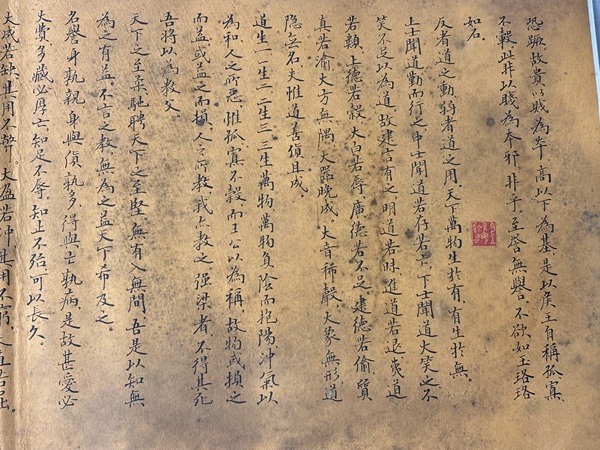 恐蹶故貴以賤為本高以下為基是以侯王自稱孤寡
不穀此非以賤為本邪非乎至譽無譽不欲如玉珞珞
如石
反者道之動弱者道之用天下萬物生於有有生於無
上士聞道勤而行之中士聞道若存若亡下士聞道大笑之不
笑不足以為道故建言有之明道若昧進道若退夷道
若纇上德若穀大白若辱廣德若不足建德若偷質
真若渝大方無隅大器晚成大音稀聲大象無形道
隱無名夫惟道善貸且成
道生一一生二二生三三生萬物萬物負陰而抱陽沖氣以
為和人之所惡惟孤寡不穀而王公以為稱故物或損之
而益或益之而損人之所教我亦教之強梁者不得其死
吾將以為教父
天下之至柔馳騁天下之至堅無有入無間吾是以知無
為之有益不言之教無為之益天下希及之
名譽身孰親身與貨孰多得與亡孰病是故甚愛必
大費多藏必厚亡知足不辱知止不殆可以長久
大成若缺其用不弊大盈若沖其用不窮大直若屈